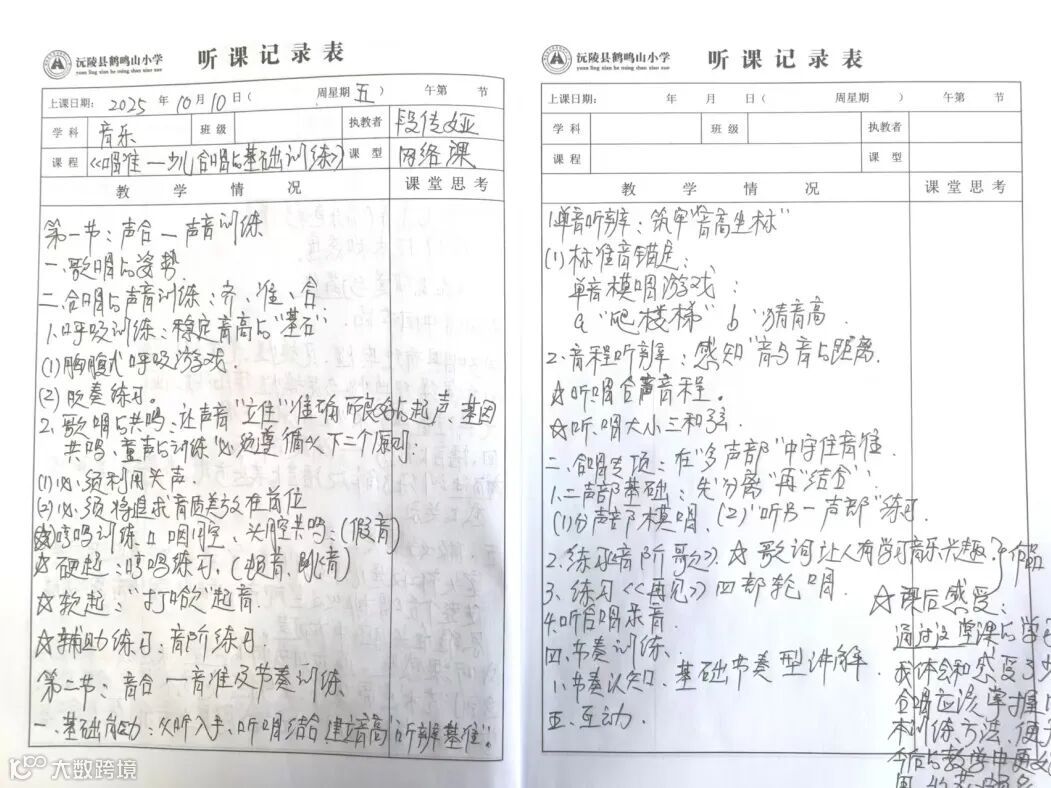 沅陵县鹤鸣山小学 听课记录表
yuan ling xian he ming shan xiao xue
上课日期: 2025 年 10 月 10 日( 周星期 五 ) 午第 节
学科 音乐 班级 执教者 段传娅
课程 《唱准—少儿合唱的基础训练》 课型 网络课
教学情况 课堂思考
第一节：声合 — 声音训练
一、歌唱的姿势
二、合唱的声音训练：齐、准、合
1、呼吸训练：稳定音高的“基石”
(1)胸腹式呼吸游戏.
(2) 节奏练习。
2、歌唱的共鸣：让声音“立住”准确而良好的起声、基因
共鸣、童声的训练必须遵循以下二个原则.
(1)必须利用头声.
(2)必须将追求音质美放在岗位
☆哼鸣训练 口咽闭腔、头腔共鸣：(假音)
☆硬起：哼鸣练习. (顿音、跳音)
☆软起：“打哈欠”起音.
☆辅助练习：音阶练习.
第二节：音合 — 音准及节奏训练
一、基础能力：从听入手、听唱结合 建立音高“听辨基准”.
沅陵县鹤鸣山小学 听课记录表
yuan ling xian he ming shan xiao xue
上课日期: 年 月 日( 周星期 ) 午第 节
学科 班级 执教者
课程 课型
教学情况 课堂思考
1.单音听辨：筑牢“音高坐标”
(1)标准音锚定：
单音模唱游戏：
a “爬楼梯” b “猜音高.
2.音程听辨：感知“音与音的距离.
☆听唱合声音程。
☆听、唱大小三和弦.
二、合唱专项：在“多声部”中守住音准.
1.二声部基础：先“分离”再“结合”.
(1)分声部模唱.(2)“听另一声部”练习.
2.练习《音阶歌》. ☆歌词让人有学习音乐兴趣.
3、练习《再见》四部轮唱.
4.听合唱录音.
四、节奏训练.
1.节奏认知、基础节奏型讲解.
五、互动.
☆课后感受：
通过这堂课的学
我体会和感受了少
合唱应该掌握
本训练方法、便于
今后的教学中更